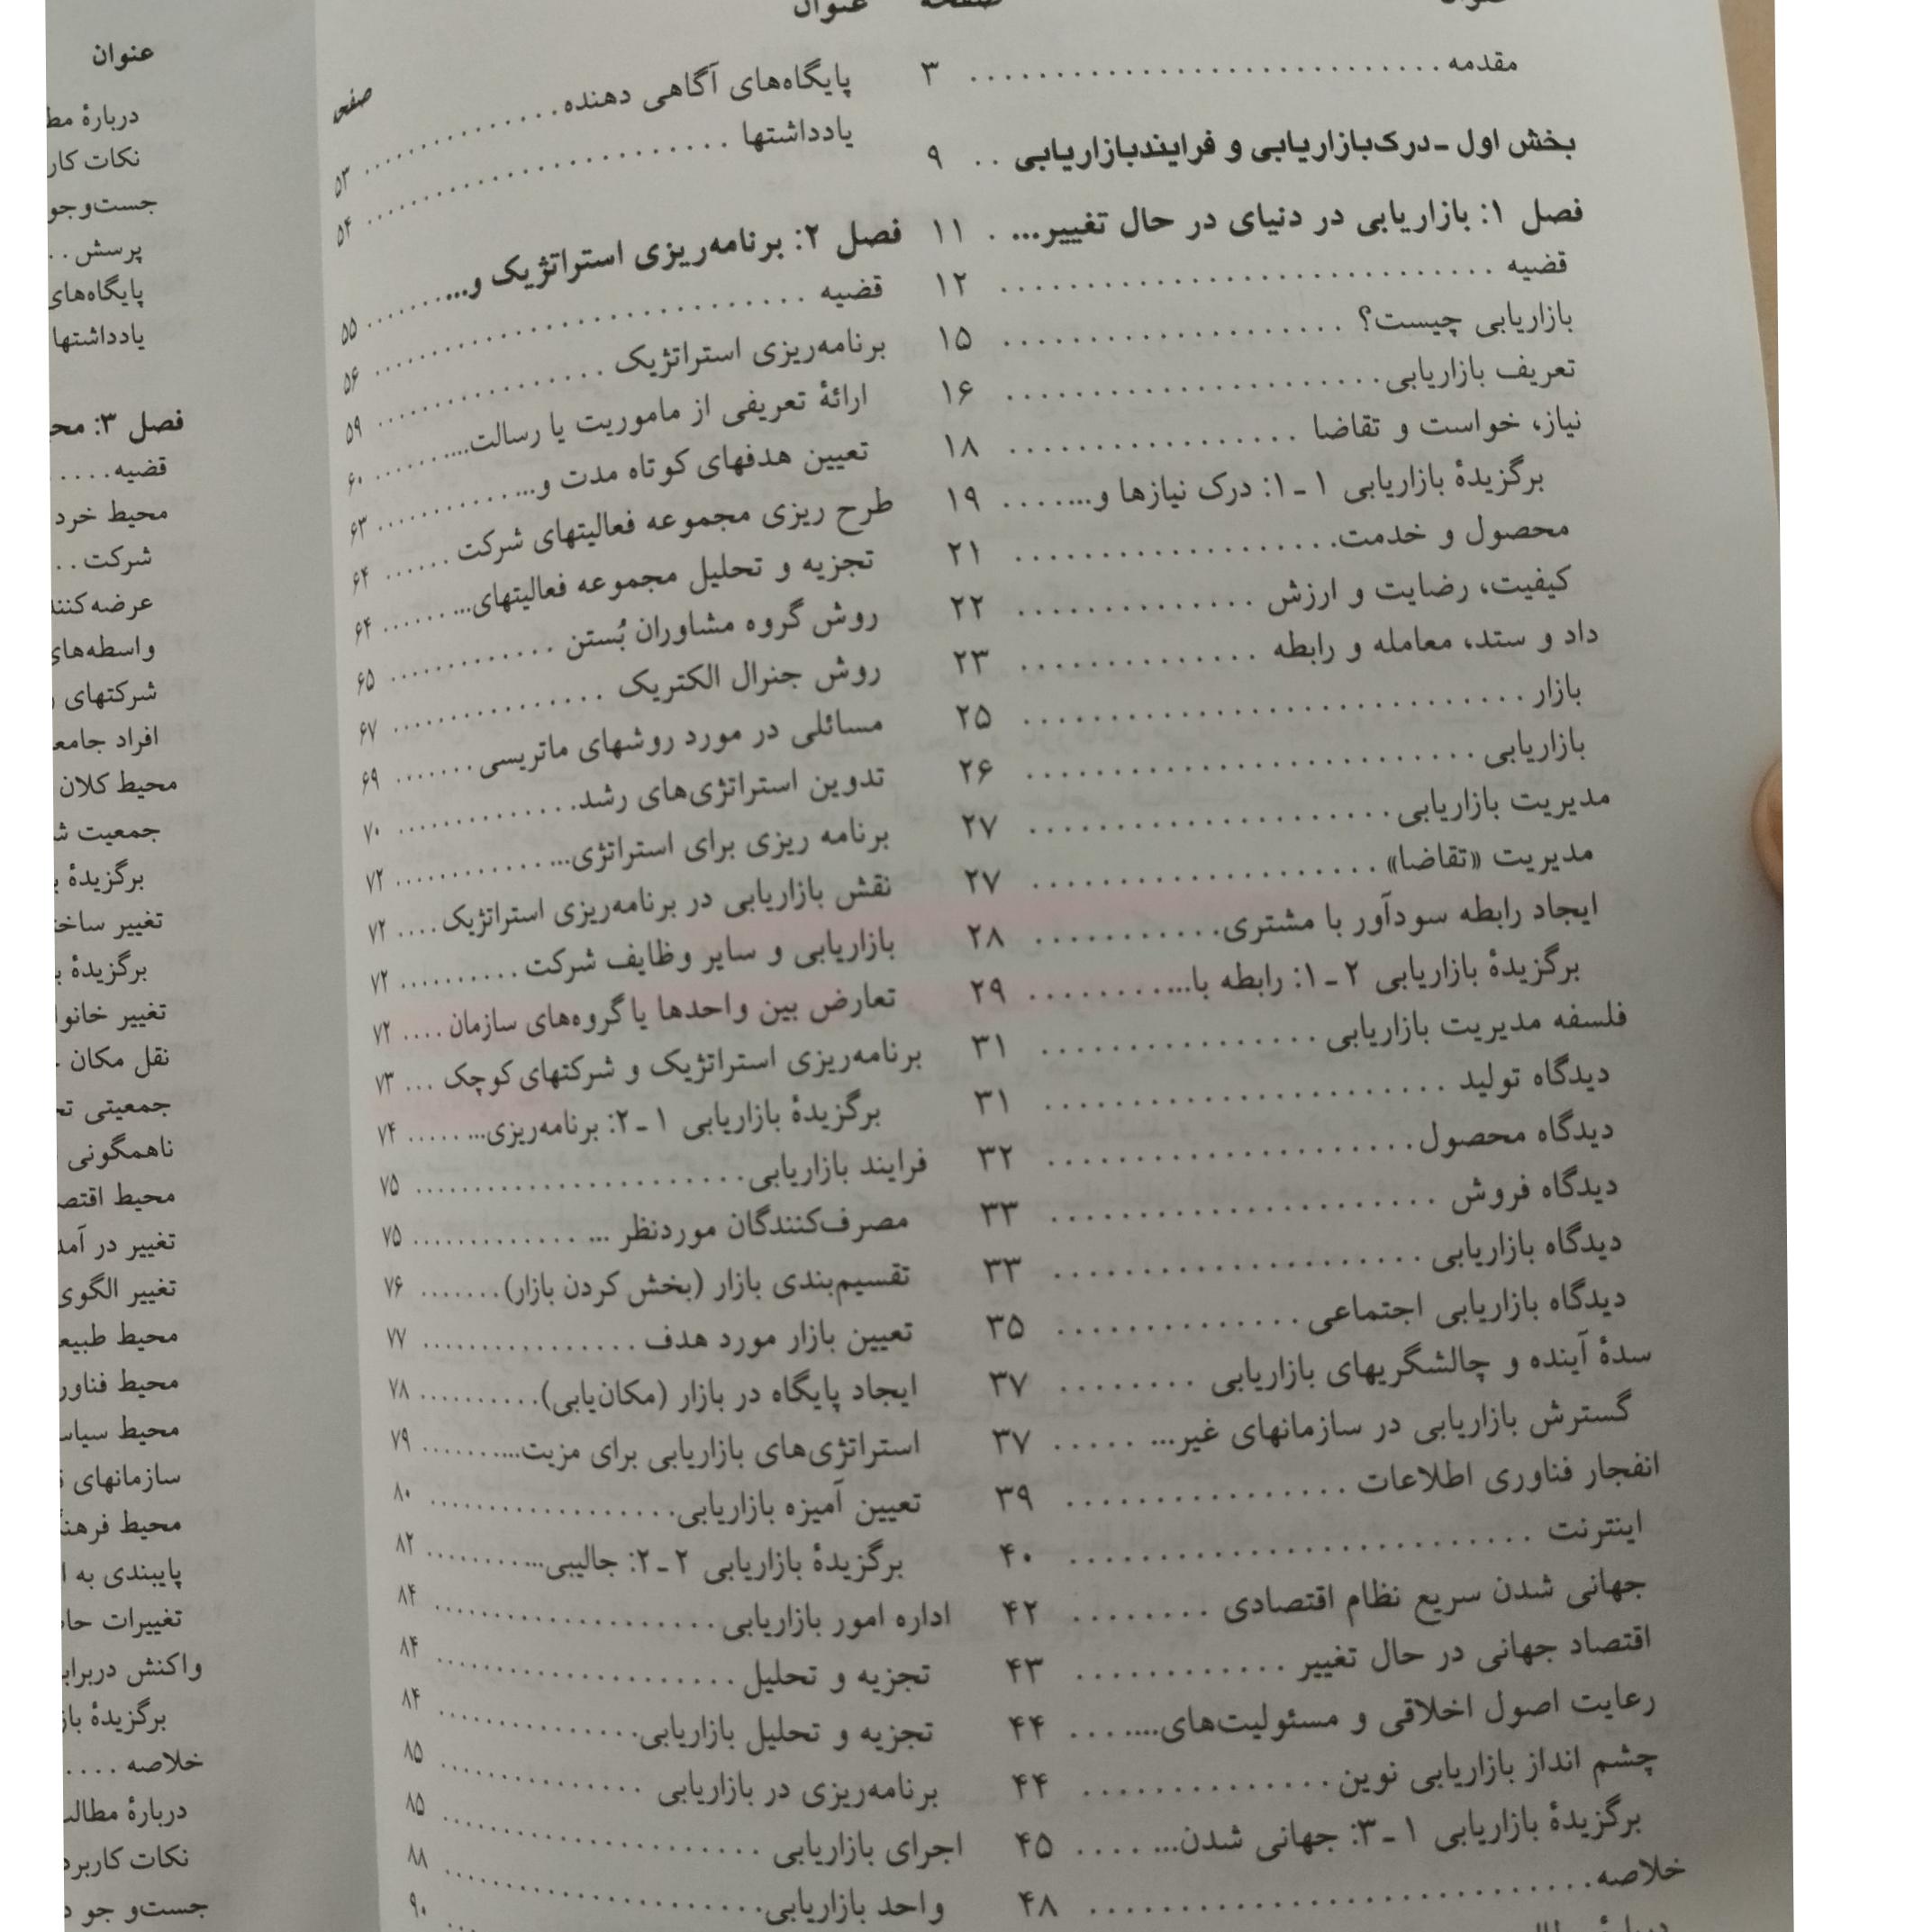 مقدمه ............................ ۳
بخش اول ـ درک‌بازاریابی و فرایندبازاریابی .. ۹
فصل ۱: بازاریابی در دنیای در حال تغییر... . ۱۱
قضیه ............................ ۱۲
بازاریابی چیست؟ .................... ۱۵
تعریف بازاریابی...................... ۱۶
نیاز، خواست و تقاضا ................. ۱۸
برگزیدهٔ بازاریابی ۱ـ۱: درک نیازها و....... ۱۹
محصول و خدمت................... ۲۱
کیفیت، رضایت و ارزش .............. ۲۲
داد و ستد، معامله و رابطه .............. ۲۳
بازار ............................. ۲۵
بازاریابی .......................... ۲۶
مدیریت بازاریابی..................... ۲۷
مدیریت «تقاضا» .................... ۲۷
ایجاد رابطه سودآور با مشتری........... ۲۸
برگزیدهٔ بازاریابی ۲ـ۱: رابطه با........... ۲۹
فلسفه مدیریت بازاریابی ................ ۳۱
دیدگاه تولید ....................... ۳۱
دیدگاه محصول..................... ۳۲
دیدگاه فروش ...................... ۳۳
دیدگاه بازاریابی ..................... ۳۳
دیدگاه بازاریابی اجتماعی .............. ۳۵
سدهٔ آینده و چالشگریهای بازاریابی ........ ۳۷
گسترش بازاریابی در سازمانهای غیر... ..... ۳۷
انفجار فناوری اطلاعات ................ ۳۹
اینترنت .......................... ۴۰
جهانی شدن سریع نظام اقتصادی ........ ۴۲
اقتصاد جهانی در حال تغییر ............ ۴۳
رعایت اصول اخلاقی و مسئولیت‌های....... ۴۴
چشم انداز بازاریابی نوین .............. ۴۴
برگزیدهٔ بازاریابی ۱ـ۳: جهانی شدن... .... ۴۵
خلاصه............................. ۴۸
عنوان
صفحه
پایگاه‌های آگاهی دهنده .............. ۵۳
یادداشتها ........................ ۵۴
فصل ۲: برنامه‌ریزی استراتژیک و.......... ۵۵
قضیه ........................... ۵۶
برنامه‌ریزی استراتژیک ............... ۵۹
ارائهٔ تعریفی از ماموریت یا رسالت.......... ۶۰
تعیین هدفهای کوتاه مدت و............. ۶۳
طرح ریزی مجموعه فعالیتهای شرکت ...... ۶۴
تجزیه و تحلیل مجموعه فعالیتهای.......... ۶۴
روش گروه مشاوران بُستن ............. ۶۵
روش جنرال الکتریک ................ ۶۷
مسائلی در مورد روشهای ماتریسی ....... ۶۹
تدوین استراتژی‌های رشد.............. ۷۰
برنامه ریزی برای استراتژی.............. ۷۲
نقش بازاریابی در برنامه‌ریزی استراتژیک .... ۷۲
بازاریابی و سایر وظایف شرکت .......... ۷۲
تعارض بین واحدها یا گروه‌های سازمان .... ۷۲
برنامه‌ریزی استراتژیک و شرکتهای کوچک ... ۷۳
برگزیدهٔ بازاریابی ۱ـ۲: برنامه‌ریزی... ..... ۷۴
فرایند بازاریابی....................... ۷۵
مصرف‌کنندگان موردنظر ... ............. ۷۵
تقسیم‌بندی بازار (بخش کردن بازار)....... ۷۶
تعیین بازار مورد هدف ................ ۷۷
ایجاد پایگاه در بازار (مکان‌یابی).......... ۷۸
استراتژی‌های بازاریابی برای مزیت.......... ۷۹
تعیین آمیزه بازاریابی.................. ۸۰
برگزیدهٔ بازاریابی ۲ـ۲: جالیبی........... ۸۲
اداره امور بازاریابی .................... ۸۴
تجزیه و تحلیل ..................... ۸۴
تجزیه و تحلیل بازاریابی............... ۸۴
برنامه‌ریزی در بازاریابی ............... ۸۵
اجرای بازاریابی ..................... ۸۵
واحد بازاریابی...................... ۸۸
۹۰
عنوان
دربارهٔ
نکات
جست‌وجو
پرسش ..
پایگاه‌های
یادداشتها
فصل ۳:
قضیه.....
محیط خرد
شرکت ..
واسطه‌های
شرکتهای
افراد
محیط کلان
جمعیت
برگزیدهٔ
تغییر
برگزیدهٔ
تغییر
نقل مکان
جمعیتی
ناهمگونی
محیط
تغییر در
تغییر الگوی
محیط
محیط
محیط
سازمانهای
محیط
پایبندی به
تغییرات
واکنش
برگزیدهٔ
خلاصه ....
دربارهٔ
نکات
جست‌و جو